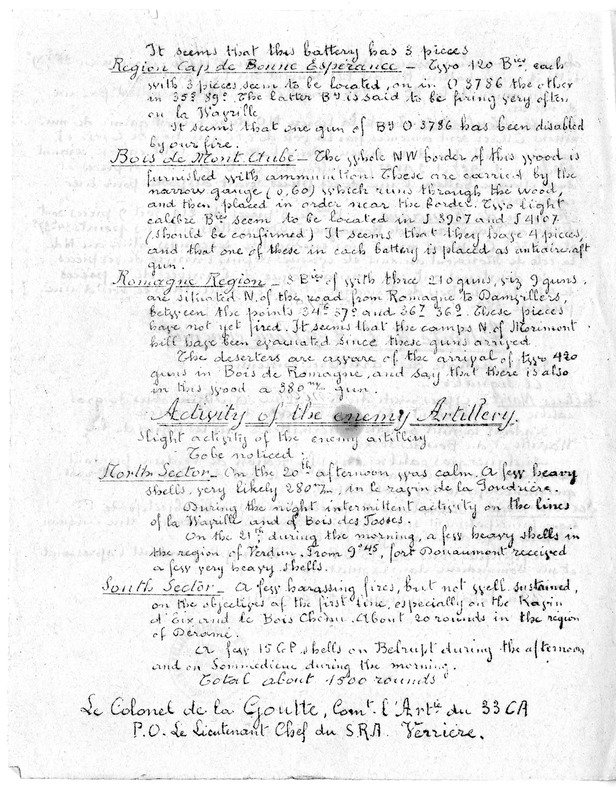 It seems that this battery has 3 pieces
Region Cap de Bonne Esperance - Two 120 Bies, each
with 3 pieces seem to be located, on in O 3786 the other
in 35⁹ 89⁹. The latter By is said to be firing very often
on la Wavrille
It seems that one gun of By O 3786 has been disabled
by our fire.
Bois de Mont Aube - The whole NW border of this wood is
furnished with ammunition. These are carried by the
narrow gauge (0,60) which runs through the wood,
and then placed in order near the border. Two light
calibre Bies seem to be located in J 3907 and J 4107
(should be confirmed) It seems that they have 4 pieces,
and that one of these in each battery is placed as antiaircraft
gun.
Romagne Region - 3 Bies of with three 210 guns, viz 9 guns,
are situated N. of the road from Romagne to Damvillers,
between the points and These pieces
have not yet fired. It seems that the camps N. of Morimont
hill have been evacuated since these guns arrived
The deserters are aware of the arrival of two 420
guns in Bois de Romagne, and say that there is also
in this wood a 380 m/m gun.
Activity of the enemy Artillery.
Slight activity of the enemy artillery
To be noticed :
North Sector - On the 20th afternoon was calm. A few heavy
shells, very likely 280 m/m, in le ravin de la Poudrière.
During the night intermittent activity on the lines
of la Wavrille and of Bois des Fosses.
On the 21st during the morning, a few heavy shells in
the region of Verdun. From 9h45, fort Douaumont received
a few very heavy shells.
South Sector - A few harassing fires, but not well sustained,
on the objectives of the first line, especially on the Ravin
d'Eix and le Bois Chenu. About 20 rounds in the region
of Dérame.
A few 15 shells on Belrupt during the afternoon
and on Sommedieue during the morning.
Total about 1500 rounds
Le Colonel de la Goutte, Comt. l'Artie du 33 CA
P.O. Le Lieutenant Chef du SRA. Verrière.